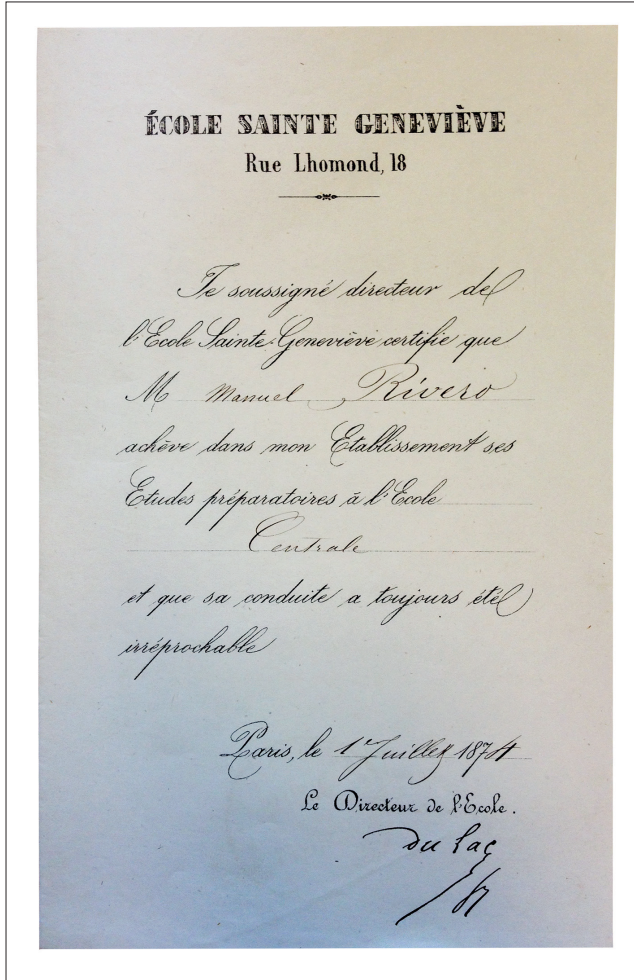 ÉCOLE SAINTE GENEVIÈVE
Rue Lhomond, 18
Je soussigné directeur de
l'Ecole Sainte-Geneviève certifie que
M Manuel Rivero
achève dans mon Etablissement ses
Etudes préparatoires à l'Ecole
Centrale
et que sa conduite a toujours été
irréprochable
Paris, le 1 Juillet 1874
Le Directeur de l'Ecole.
du Lac